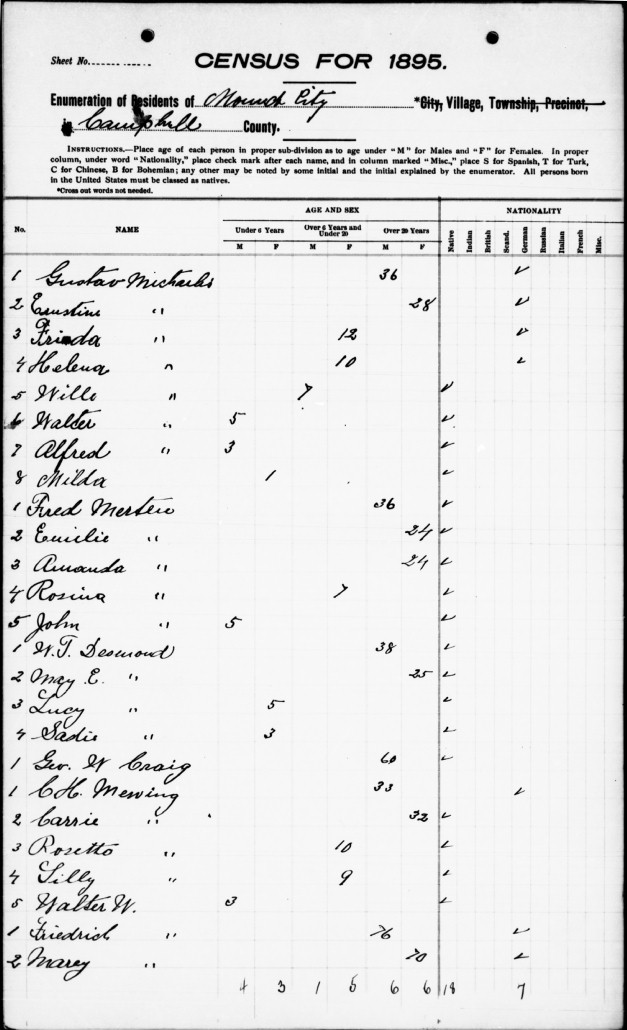 Sheet No.
CENSUS FOR 1895.
Enumeration of Residents of Mound City *City, Village, Township, Precinct,
in Campbell County.
INSTRUCTIONS.—Place age of each person in proper sub-division as to age under "M" for Males and "F" for Females. In proper
column, under word "Nationality," place check mark after each name, and in column marked "Misc.," place S for Spanish, T for Turk,
C for Chinese, B for Bohemian; any other may be noted by some initial and the initial explained by the enumerator. All persons born
in the United States must be classed as natives.
*Cross out words not needed.
AGE AND SEX NATIONALITY
No. NAME Under 6 Years Over 6 Years and Under 20 Over 20 Years
M F M F M F Native Indian British Scand. German Russian Italian French Misc.
1 Gustav Michaelis 36 ✓
2 Ernstine " 28 ✓
3 Frieda " 12 ✓
4 Helena " 10 ✓
5 Wille " 7 ✓
6 Walter " 5 ✓
7 Alfred " 3 ✓
8 Milda 1 ✓
1 Fred Merten 36 ✓
2 Emilie " 24 ✓
3 Amanda " 24 ✓
4 Rosina " 7 ✓
5 John " 5 ✓
1 W. T. Desmond 38 ✓
2 May E. " 25 ✓
3 Lucy " 5 ✓
4 Sadie " 3 ✓
1 Geo. W Craig 60 ✓
1 C H. Mewing 33 ✓
2 Carrie " 32 ✓
3 Rosetto " 10 ✓
4 Lilly " 9 ✓
5 Walter W. 3 ✓
1 Friedrich " 76 ✓
2 Marey " 70 ✓
4 3 1 5 6 6 18 7